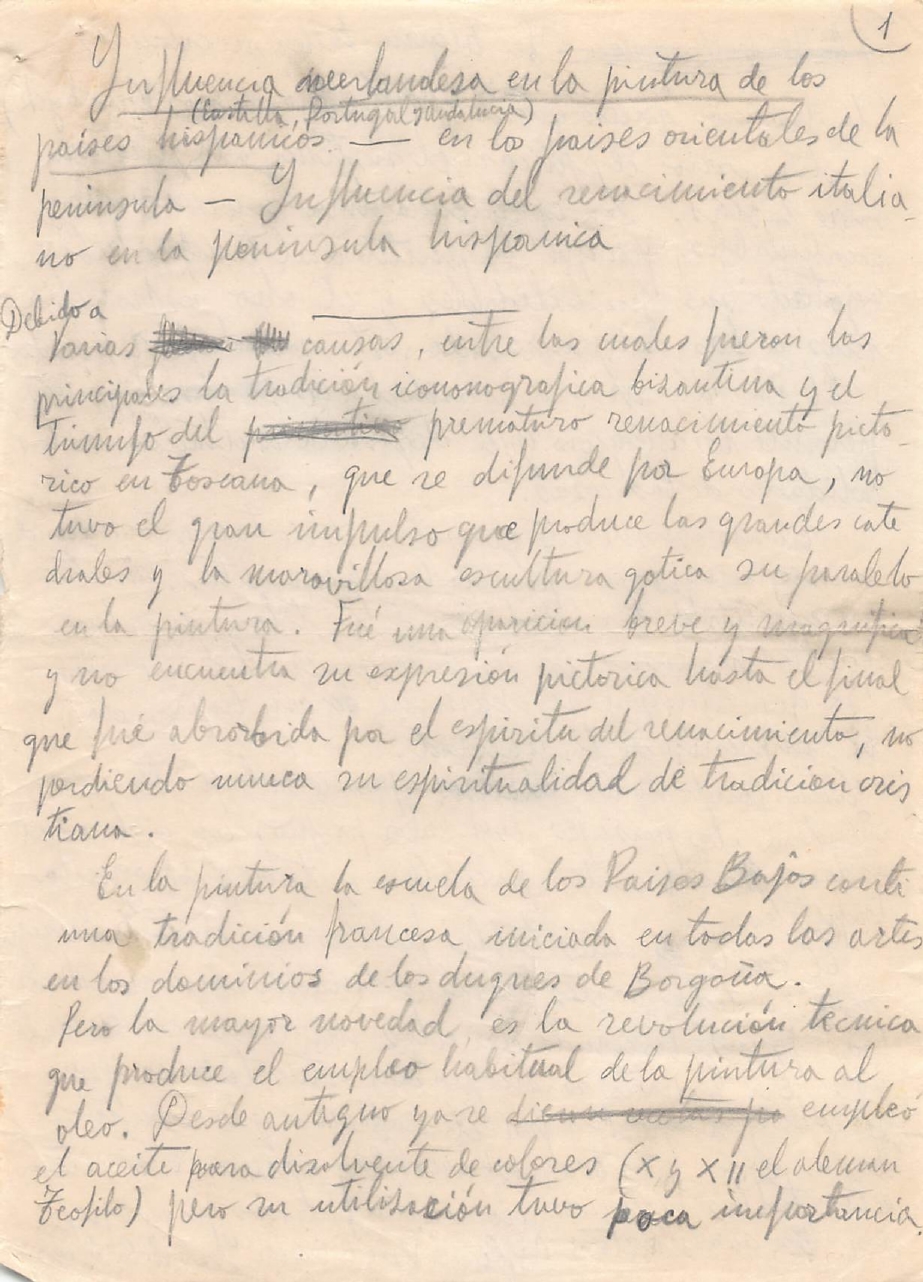 1
Influencia neerlandesa en la pintura de los
(Castilla, Portugal y andalucia)
países hispanicos. — en los paises orientales de la
peninsula — Influencia del renacimiento italia-
no en la peninsula hispanica
Debido a
Varias causas, entre las cuales fueron las
principales la tradición iconografica bizantina y el
triunfo del prematuro renacimiento picto-
rico en Toscana, que se difunde por Europa, no
tuvo el gran impulso que produce las grandes cate
drales y la maravillosa escultura gotica su paralelo
en la pintura. Fué una aparicion breve y magnifica
y no encuentra su expresión pictorica hasta el final
que fué absorbida por el espiritu del renacimiento, no
perdiendo nunca su espiritualidad de tradicion cris
tiana.
En la pintura la escuela de los Paises Bajos conti
nua tradición francesa iniciada en todas las artes
en los dominios de los duques de Borgoña.
Pero la mayor novedad es la revolución tecnica
que produce el empleo habitual de la pintura al
oleo. Desde antiguo ya se empleó
el aceite para disolvente de colores (X y XII el aleman
Teofilo) pero su utilización tuvo poca importancia.